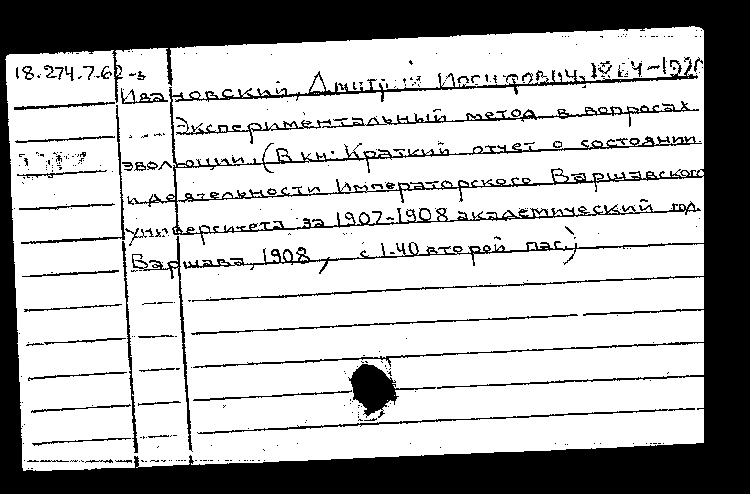 18.274.7.62-з
Ивановский, Дмитрий Иосифович, 1864-1920
Экспериментальный метод в вопросах
эволюции. (В кн: Краткий отчет о состоянии
и деятельности Императорского Варшавского
Университета за 1907-1908 академический год.
Варшава, 1908, с 1-40 второй паг.)